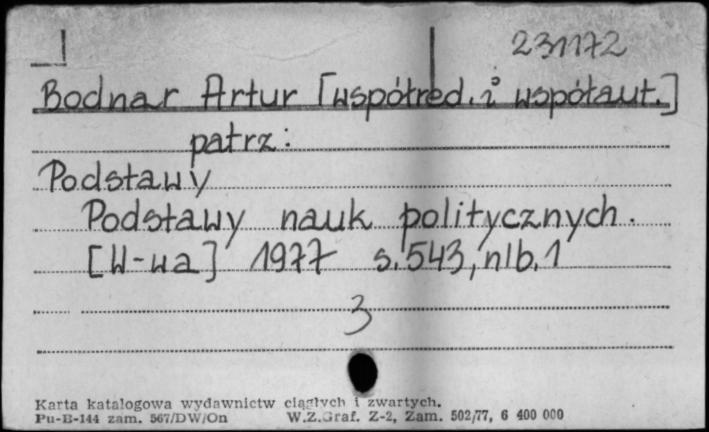 231172
Bodnar Artur [współred. i współaut.]
patrz:
Podstawy
Podstawy nauk politycznych.
[W-wa] 1977 s. 543, nlb. 1
3
Karta katalogowa wydawnictw ciągłych i zwartych.
Pu-B-144 zam. 567/DW/On W.Z.Graf. Z-2, Zam. 502/77, 6 400 000